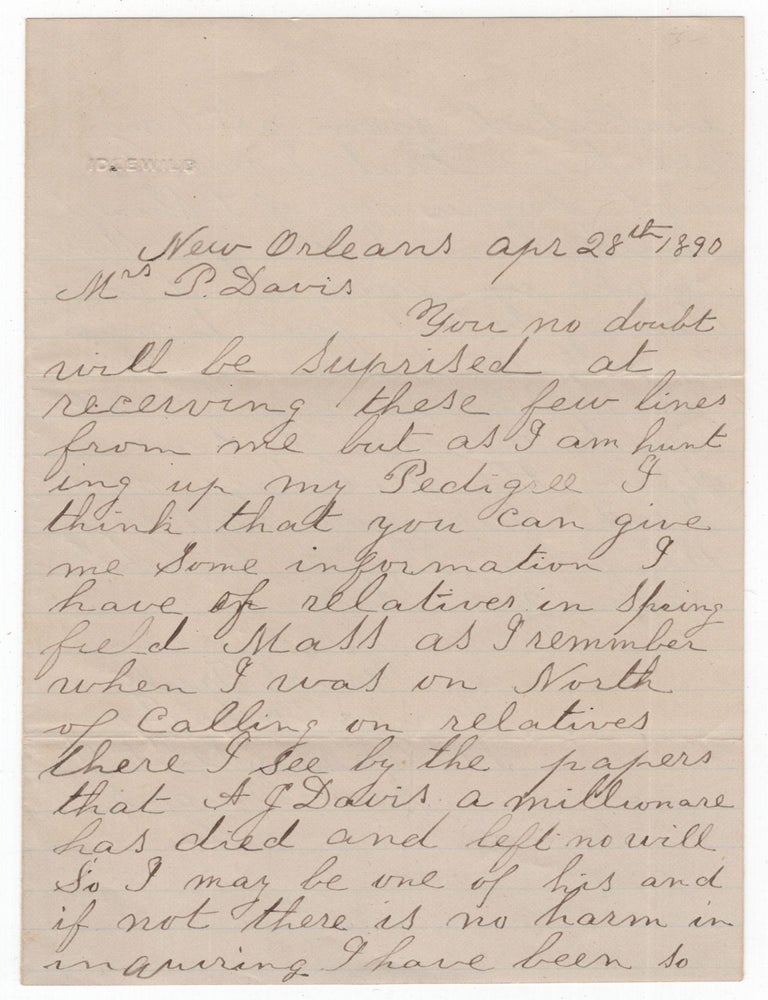 IDLEWILD
New Orleans apr 28th 1890
Mrs P. Davis
You no doubt
will be suprised at
receiving these few lines
from me but as I am hunt
ing up my Pedigree I
think that you can give
me some information I
have of relatives in Spring
field Mass as I remmber
when I was on North
of calling on relatives
there I see by the papers
that A J Davis a millionare
has died and left no will
So I may be one of his and
if not there is no harm in
inquiring I have been so